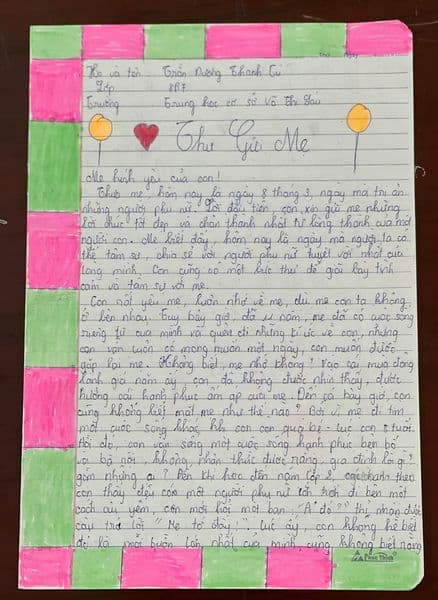 Họ và tên Trần Dương Thanh Tú
Lớp 8A7
Trường Trung học cơ sở Võ Thị Sáu
Thư Gửi Mẹ
Mẹ kính yêu của con!
Thưa mẹ, hôm nay là ngày 8 tháng 3, ngày mà tri ân
những người phụ nữ. Lời đầu tiên, con xin gửi mẹ những
lời chúc tốt đẹp và chân thành nhất từ lòng thành của một
người con. Mẹ biết đấy, hôm nay là ngày mà người ta có
thể tâm sự, chia sẻ với người phụ nữ tuyệt vời nhất của
lòng mình. Con cũng có một bức thư để giải bày tình
cảm và tâm sự với mẹ.
Con rất yêu mẹ, luôn nhớ về mẹ, dù mẹ con ta không
ở bên nhau. Tuy bây giờ, đã 11 năm, mẹ đã có cuộc sống
riêng tư của mình và quên đi những kí ức về con, nhưng
con vẫn luôn có mong muốn một ngày, con muốn được
gặp lại mẹ. Không biết, mẹ nhớ không? Vào cái mùa đông
lạnh giá năm ấy con đã không được nhìn thấy, được
hưởng cái hạnh phúc ấm áp của mẹ. Đến cả bây giờ, con
cũng không biết mặt mẹ như thế nào? Bởi vì mẹ đi tìm
một cuộc sống khác khi con còn quá bé - lúc con 3 tuổi.
Hồi đó, con vẫn sống một cuộc sống hạnh phúc bên bố
và bà nội, không nhận thức được rằng, gia đình là gì?
gồm những ai? Đến khi học đến năm lớp 2,
con thấy đều có một người phụ nữ đi bên một
cách âu yếm, con mới hỏi một bạn: "Ai đó?" thì nhận được
câu trả lời "Mẹ tớ đấy". Lúc ấy, con không hề biết
đó là nỗi buồn lớn nhất của mình cũng không biết rằng